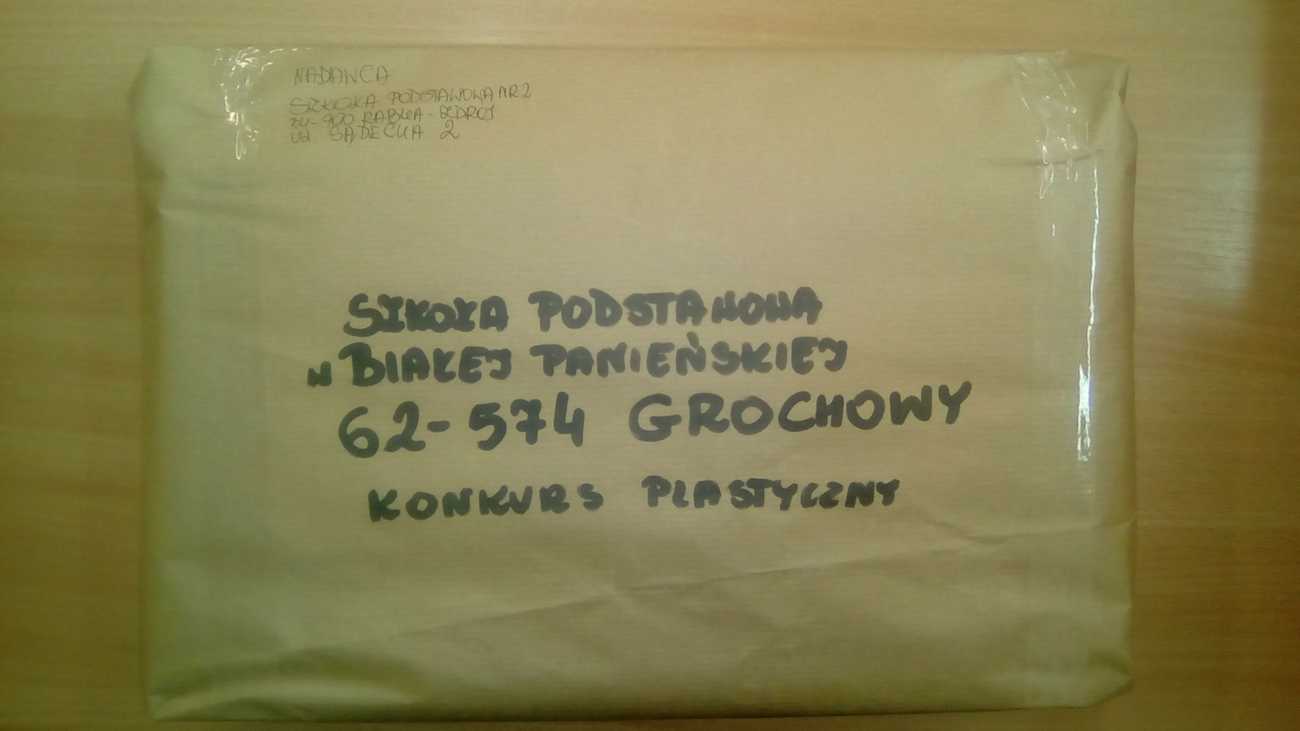 NADAWCA
SZKOŁA PODSTAWOWA NR 2
34-700 RABKA-ZDRÓJ
UL. SĄDECKA 2
SZKOŁA PODSTAWOWA
W BIAŁEJ PANIEŃSKIEJ
62-574 GROCHOWY
KONKURS PLASTYCZNY